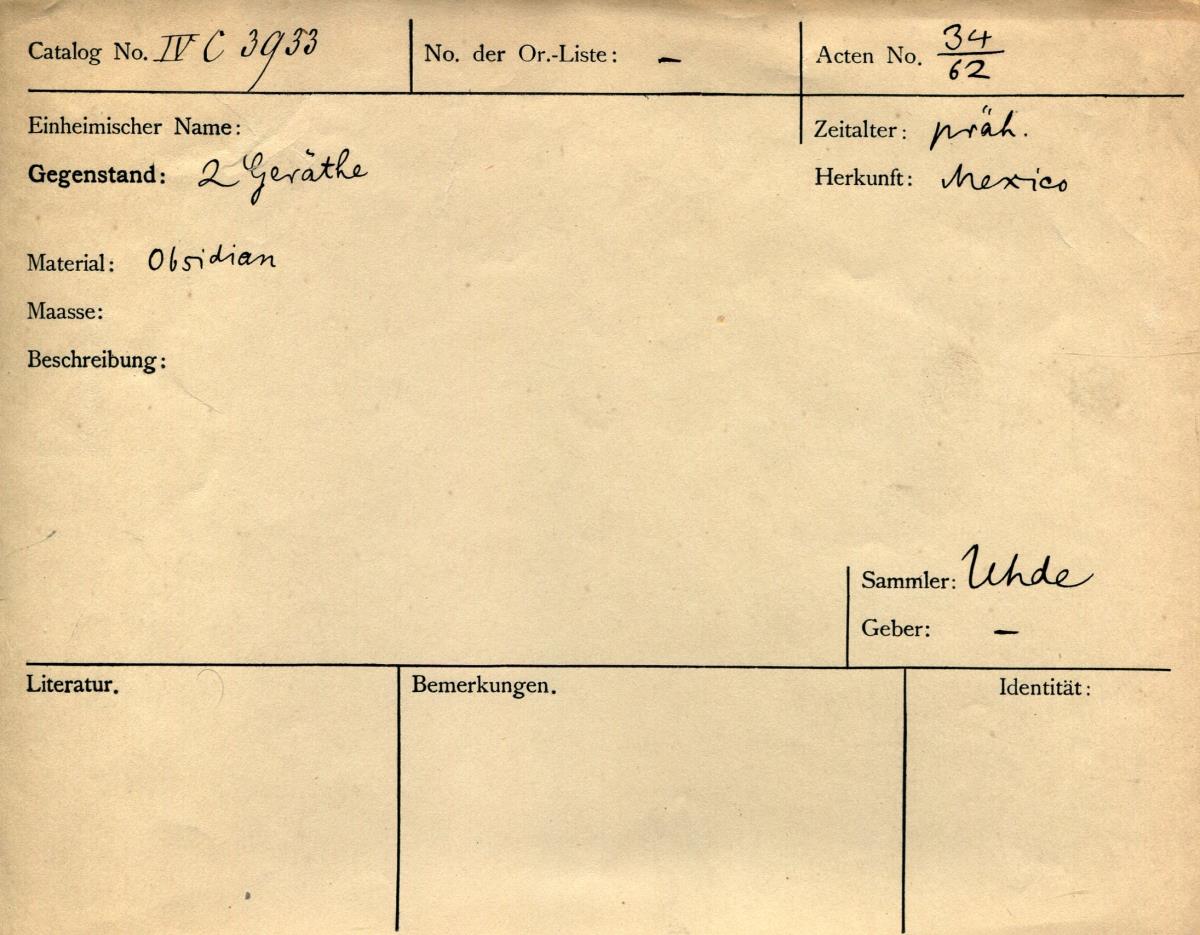 Catalog No. IV C 3933 No. der Or.-Liste: – Acten No. 34/62
Einheimischer Name: Zeitalter: präh.
Gegenstand: 2 Geräthe Herkunft: Mexico
Material: Obsidian
Maasse:
Beschreibung:
Sammler: Uhde
Geber: –
Literatur. Bemerkungen. Identität: